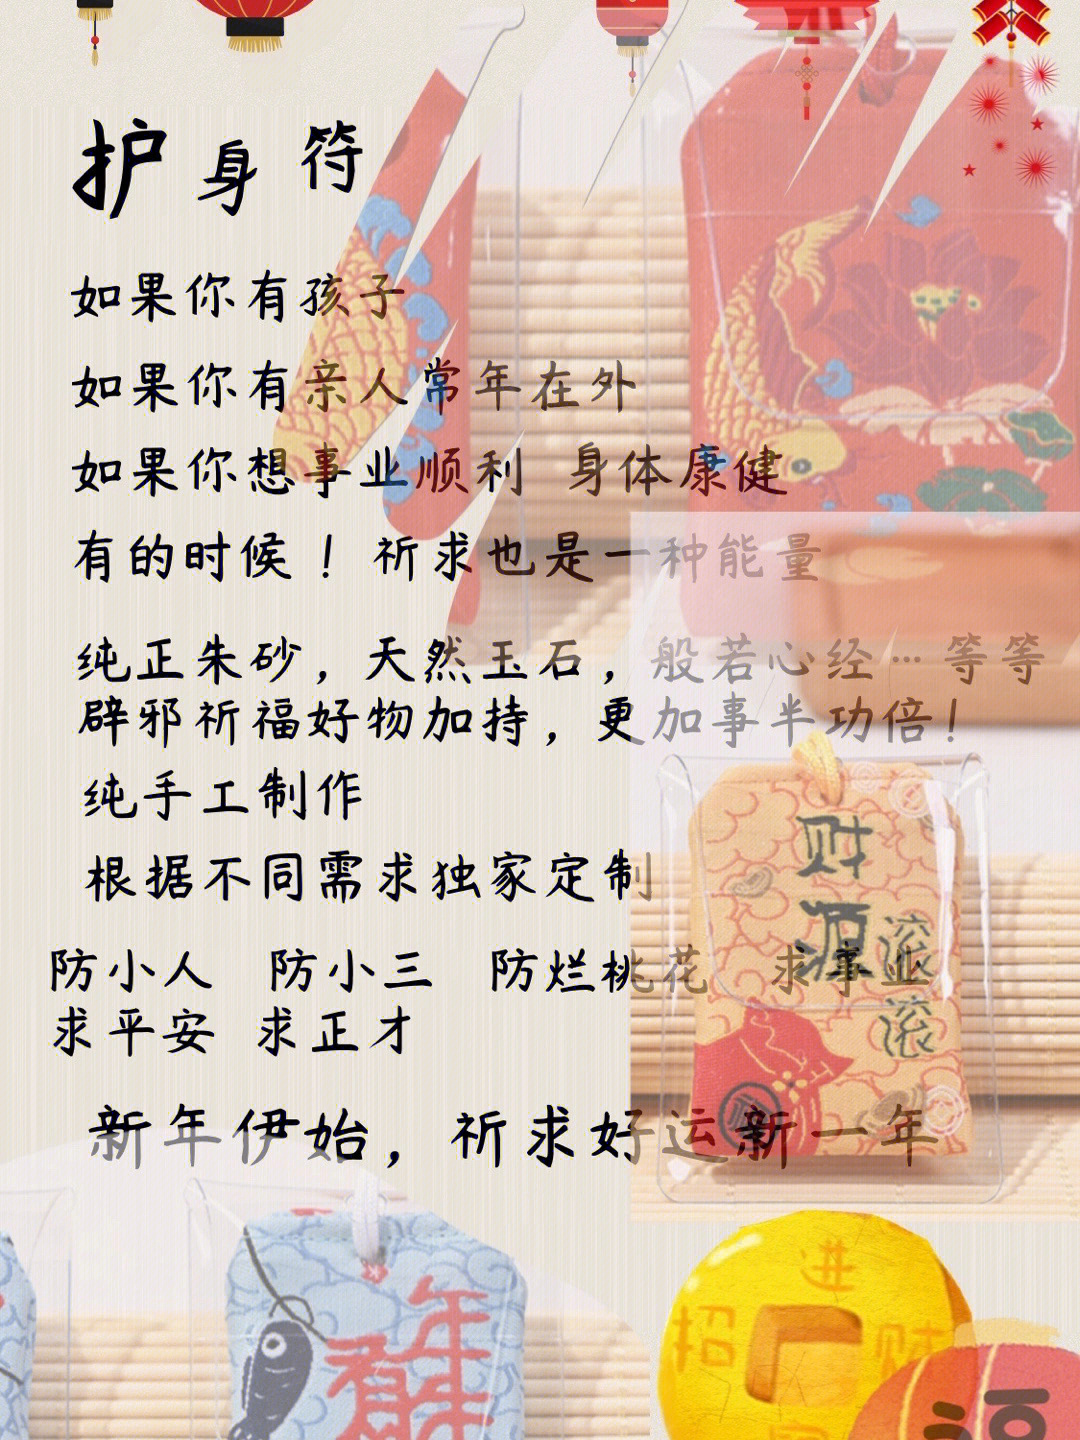 护身符
如果你有孩子
如果你有亲人常年在外
如果你想事业顺利 身体康健
有的时候！祈求也是一种能量
纯正朱砂，天然玉石，般若心经…等等
辟邪祈福好物加持，更加事半功倍！
纯手工制作
根据不同需求独家定制
防小人 防小三 防烂桃花 求事业
求平安 求正才
新年伊始，祈求好运新一年
财源
滚滚
年年有
招
进
财
福